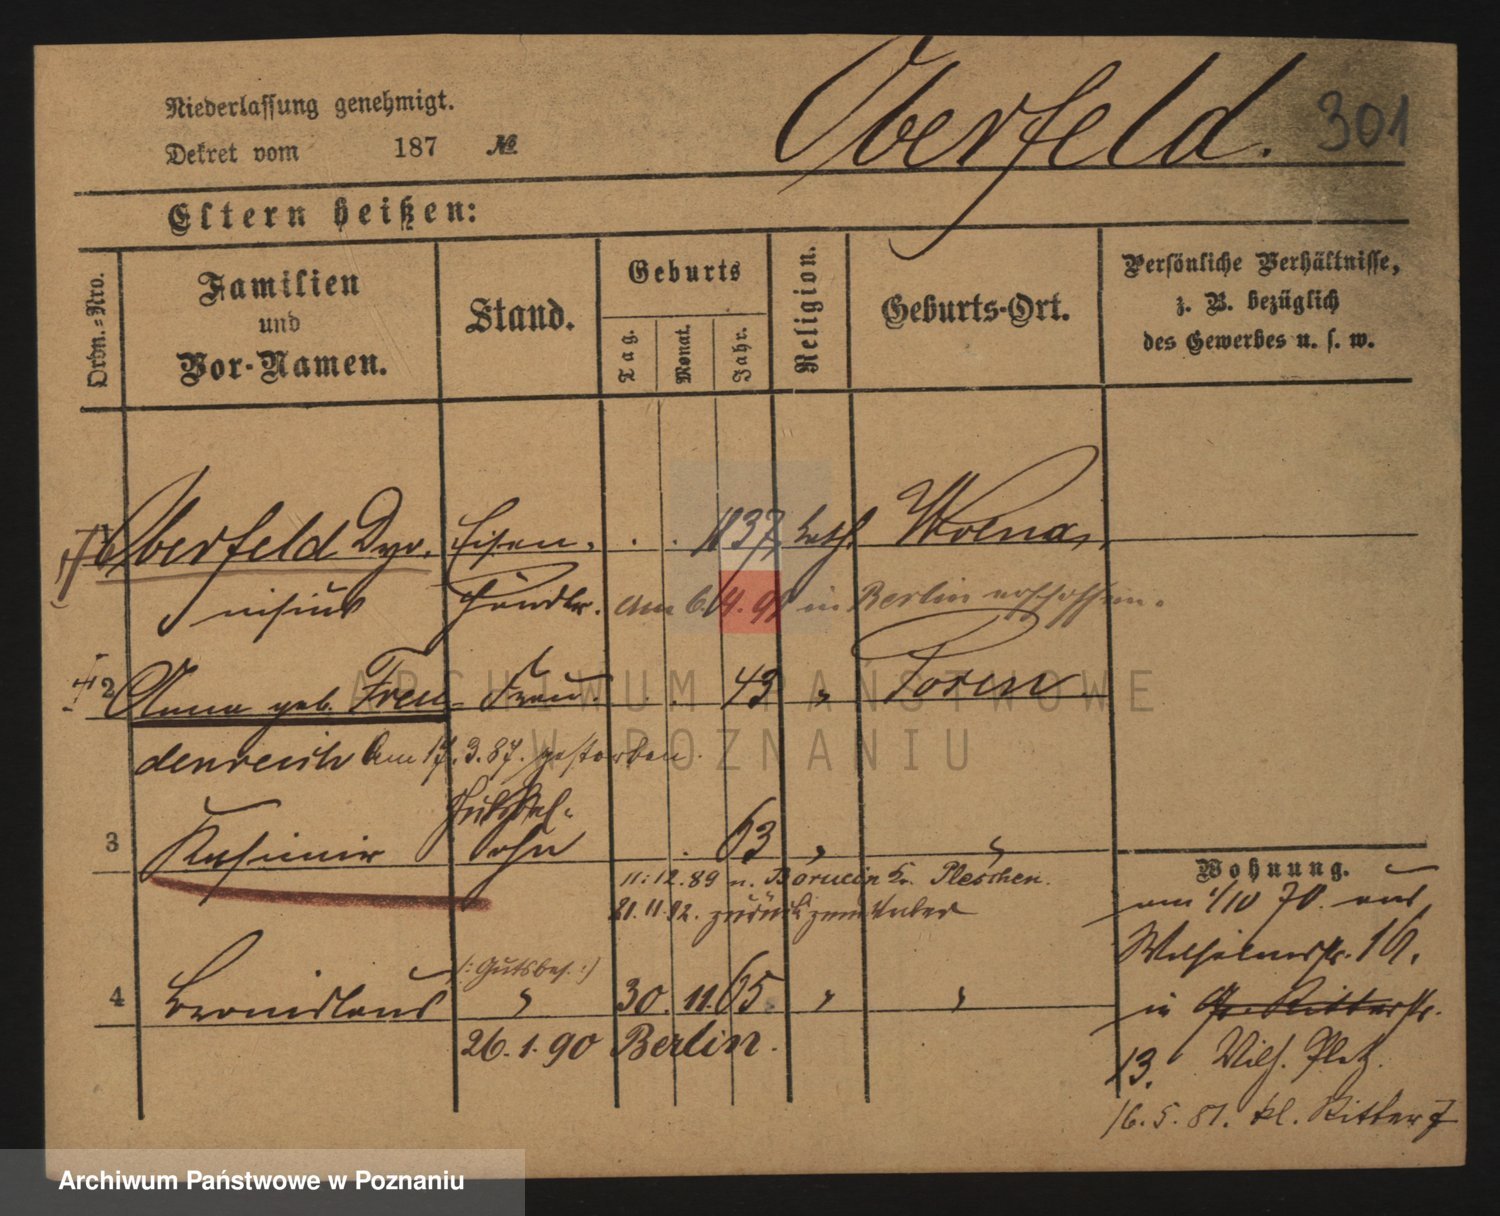 Niederlassung genehmigt.
Dekret vom 187 №
Oberfeld. 301
Eltern heißen:
Ordn.-Nro.
Familien
und
Vor-Namen.
Stand.
Geburts
Tag.
Monat.
Jahr.
Religion.
Geburts-Ort.
Persönliche Verhältnisse,
z. B. bezüglich
des Gewerbes u. s. w.
Oberfeld Dyo- Eisen- 1837 kath. Wrena
nisius Händler. am 6.4.91 in Berlin
2 Anna geb. Freu- Frau 43 " Posen
denreich Am 17.3.87. gestorben.
3 Kasimir 63 " "
11.12.89 n. Borucin Kr. Pleschen.
21.11.92. zurück zum Vater
(: Gutsbes. :)
4 Bronislaus " 30. 11. 65 " "
26. 1. 90 Berlin.
Wohnung.
am 1/10 70. aus
Wilhelmstr. 16.
in Gr. Ritterstr.
13. Wilh. Platz.
16. 5. 81. kl. Ritter 7
ARCHIWUM PAŃSTWOWE
W POZNANIU
Archiwum Państwowe w Poznaniu